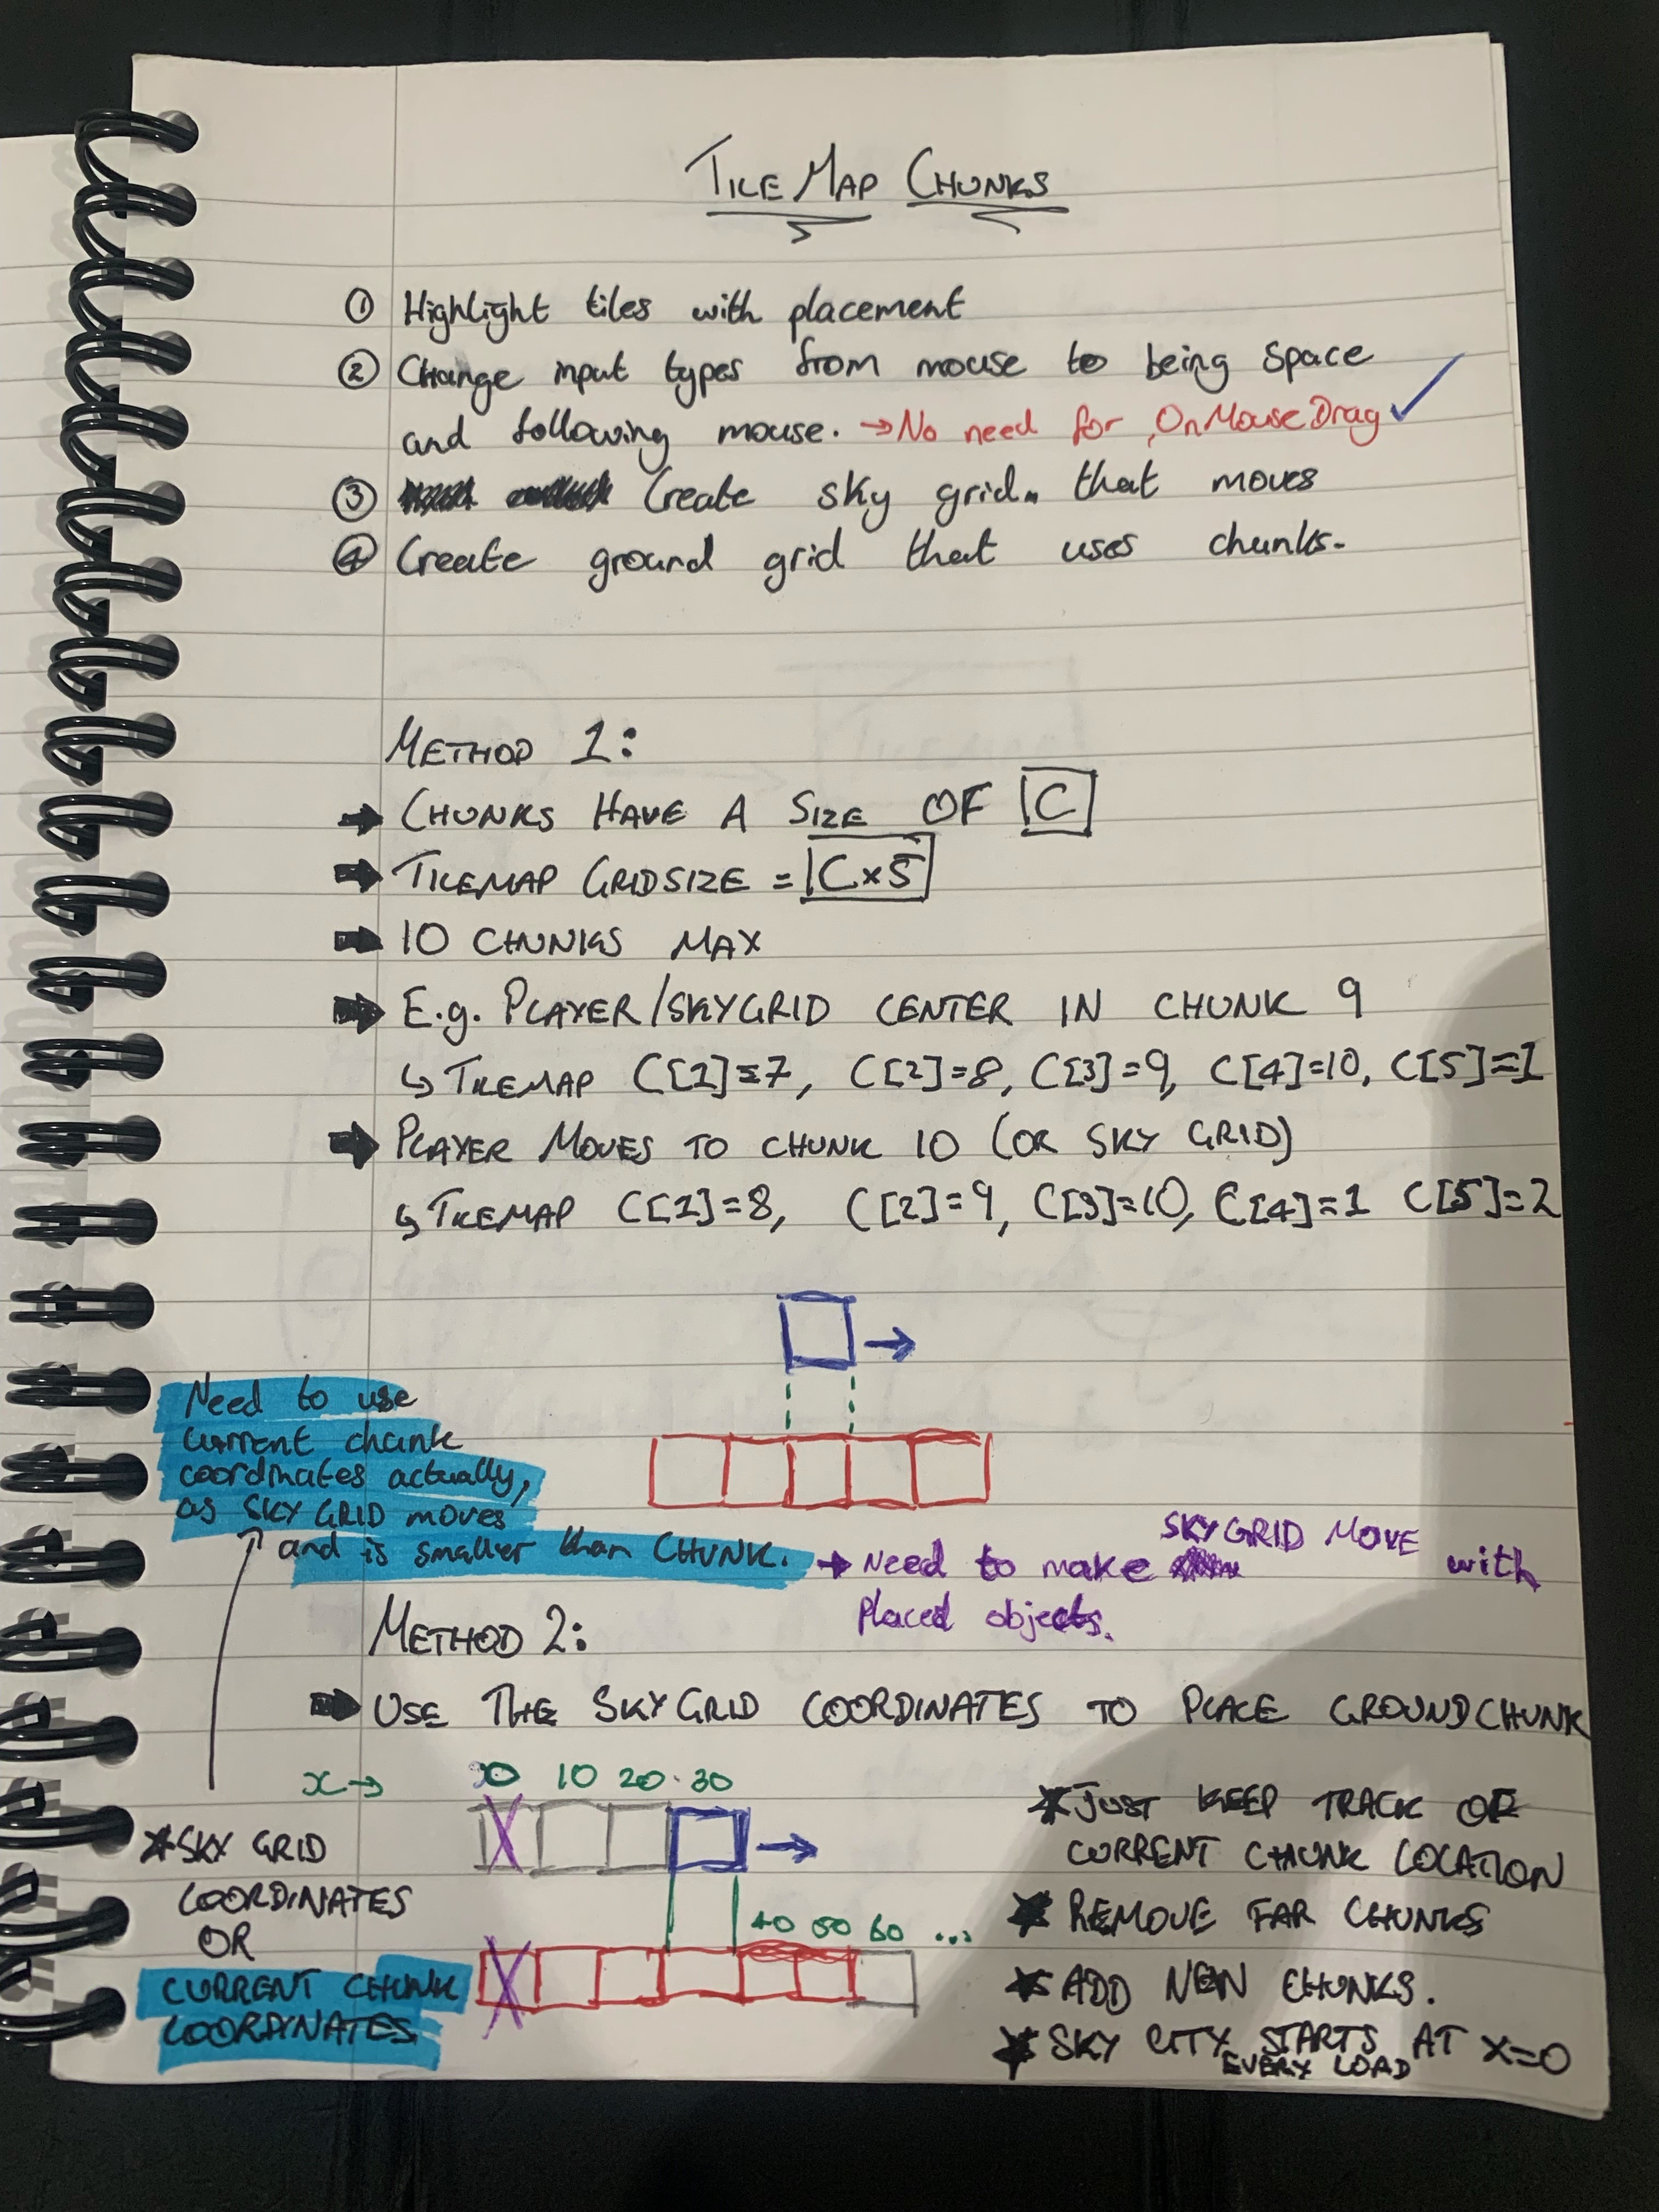 TILE MAP CHUNKS
① Highlight tiles with placement
② Change input types from mouse to being space
and following mouse. → No need for OnMouseDrag ✓
③ Create sky grid that moves
④ Create ground grid that uses chunks.
METHOD 1:
→ CHUNKS HAVE A SIZE OF C
→ TILEMAP GRIDSIZE = C×5
→ 10 CHUNKS MAX
→ E.g. PLAYER/SKYGRID CENTER IN CHUNK 9
↳ TILEMAP C[1]=7, C[2]=8, C[3]=9, C[4]=10, C[5]=1
→ PLAYER MOVES TO CHUNK 10 (OR SKY GRID)
↳ TILEMAP C[1]=8, C[2]=9, C[3]=10, C[4]=1 C[5]=2
Need to use
current chunk
coordinates actually,
as SKY GRID moves
and is smaller than CHUNK. → Need to make SKYGRID MOVE with
placed objects.
METHOD 2:
→ USE THE SKYGRID COORDINATES TO PLACE GROUNDCHUNK
x→ 0 10 20 30
* SKY GRID
COORDINATES
OR
CURRENT CHUNK
COORDINATES
40 50 60 ...
* JUST KEEP TRACK OF
CURRENT CHUNK LOCATION
* REMOVE FAR CHUNKS
* ADD NEW CHUNKS.
* SKY CITY STARTS AT x=0
EVERY LOAD